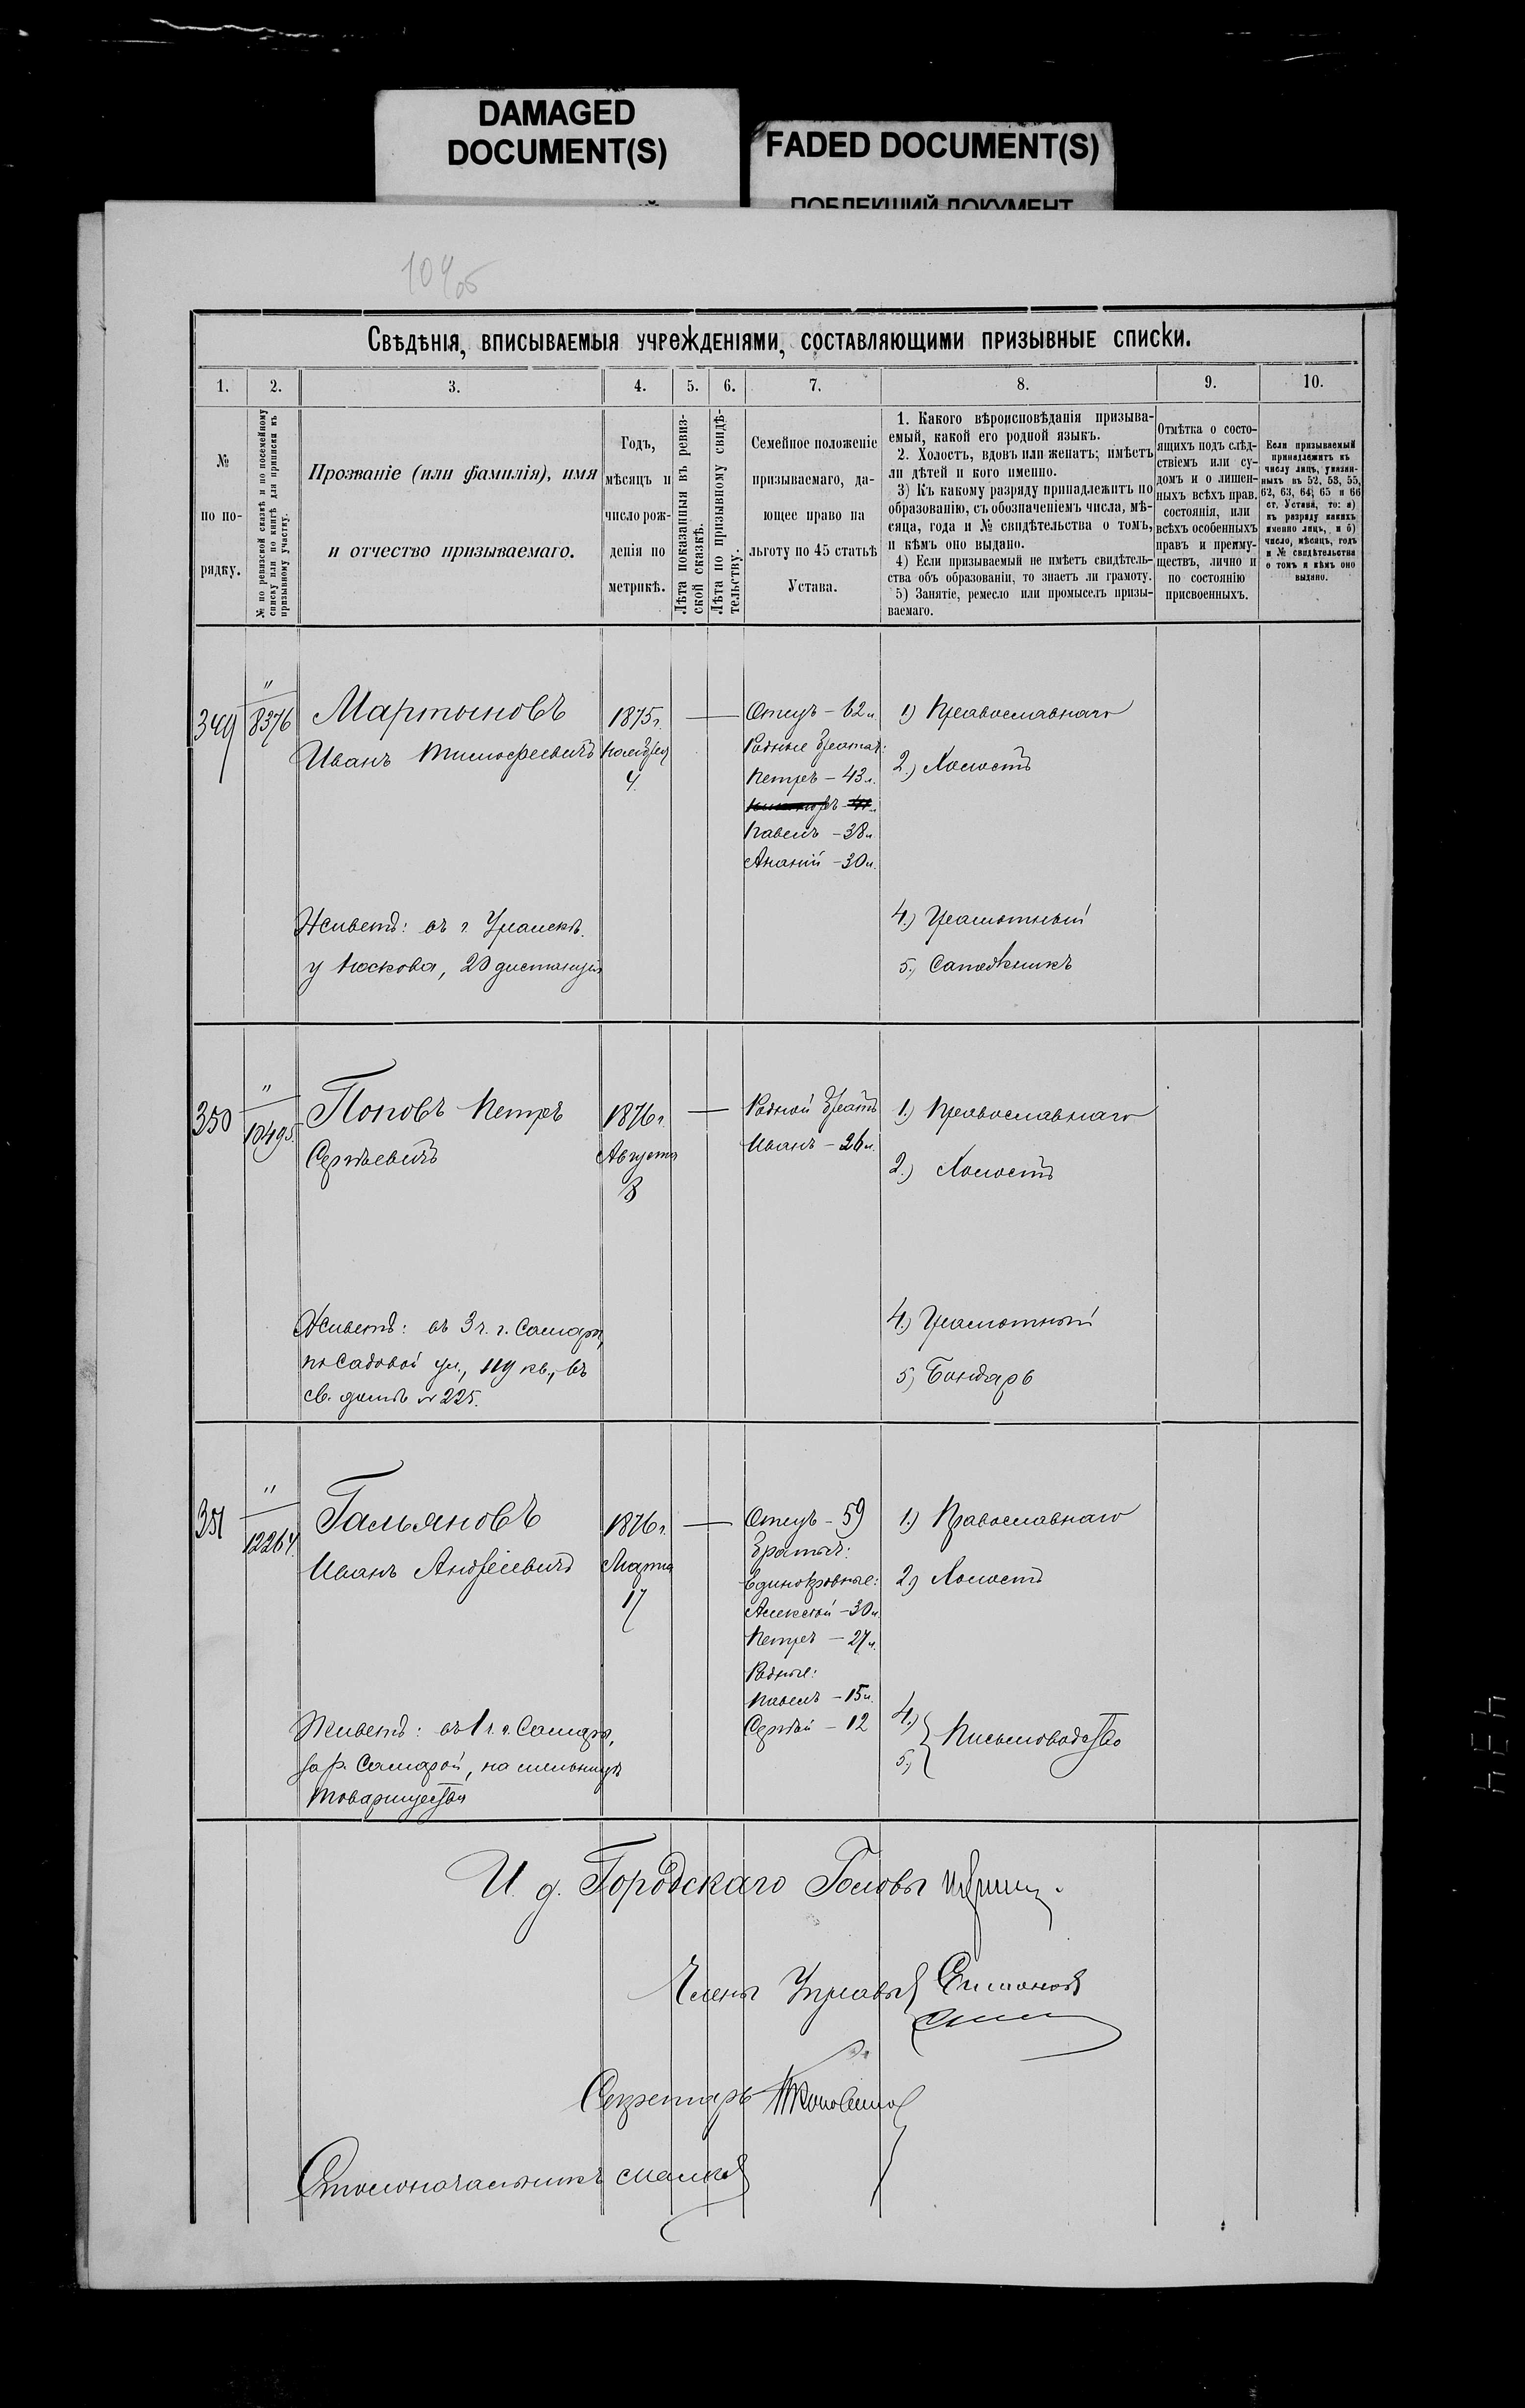 DAMAGED
DOCUMENT(S)
FADED DOCUMENT(S)
ПОБЛЕКШИЙ ДОКУМЕНТ
Свѣдѣнія, вписываемыя учрежденіями, составляющими призывные списки.
1. 2. 3. 4. 5. 6. 7. 8. 9. 10.
№
по по-
рядку.
№ по ревизской сказкѣ и по посемейному
списку или по книгѣ для приписки къ
призывному участку.
Прозваніе (или фамилія), имя
и отчество призываемаго.
Годъ,
мѣсяцъ и
число рож-
денія по
метрикѣ.
Лѣта показанныя въ ревиз-
ской сказкѣ.
Лѣта по призывному свидѣ-
тельству.
Семейное положеніе
призываемаго, да-
ющее право на
льготу по 45 статьѣ
Устава.
1. Какого вѣроисповѣданія призыва-
емый, какой его родной языкъ.
2. Холостъ, вдовъ или женатъ; имѣетъ
ли дѣтей и кого именно.
3) Къ какому разряду принадлежитъ по
образованію, съ обозначеніемъ числа, мѣ-
сяца, года и № свидѣтельства о томъ,
и кѣмъ оно выдано.
4) Если призываемый не имѣетъ свидѣтель-
ства объ образованіи, то знаетъ ли грамоту.
5) Занятіе, ремесло или промыселъ призы-
ваемаго.
Отмѣтка о состо-
ящихъ подъ слѣд-
ствіемъ или су-
домъ и о лишен-
ныхъ всѣхъ прав.
состоянія, или
всѣхъ особенныхъ
правъ и преиму-
ществъ, лично и
по состоянію
присвоенныхъ.
Если призываемый
принадлежитъ къ
числу лицъ, указан-
ныхъ въ 52, 53, 55,
62, 63, 64, 65 и 66
ст. Устава, то: а)
къ разряду какихъ
именно лицъ, и б)
число, мѣсяцъ, годъ
и № свидѣтельства
о томъ и кѣмъ оно
выдано.
349
"
8376
Мартыновъ
Иванъ Тимофеевичъ
1875 г.
Ноября
4
Отецъ – 62 л.
Родные братья:
Петръ – 43 л.
Павелъ – 38 л.
Ананій – 30 л.
1) Православнаго
2.) Холостъ
4.) Грамотный
5.) Сапожникъ
Живетъ: въ г. Уральскѣ
20 дистанція
350
"
10495.
Поповъ Петръ
Сергѣевичъ
1876 г.
Августа
8
Родной братъ
Иванъ – 26 л.
1.) Православнаго
2.) Холостъ
4.) Грамотный
5) Бондарь
Живетъ: въ 3 ч. г. Самары,
по Садовой ул., 119 кв., въ
св. домѣ № 225.
351
"
12264.
Гальяновъ
Иванъ Андреевичъ
1876 г.
Марта
17
Отецъ – 59
Братья:
Единокровные:
Алексѣй – 30 л.
Петръ – 27 л.
Родные:
Павелъ – 15 л.
Сергѣй – 12
1.) Православнаго
2.) Холостъ
4.)
5.) Письмоводство
Живетъ: въ 1 ч. г. Самары,
за р. Самарой, на мельницѣ
Товарищества
И. д. Городскаго Головы
Члены Управы
Секретарь
Столоначальникъ